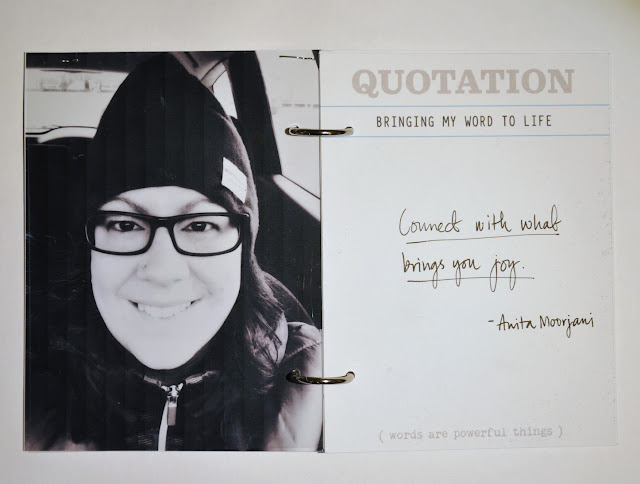 QUOTATION
BRINGING MY WORD TO LIFE
Connect with what
brings you joy.
- Anita Moorjani
( words are powerful things )